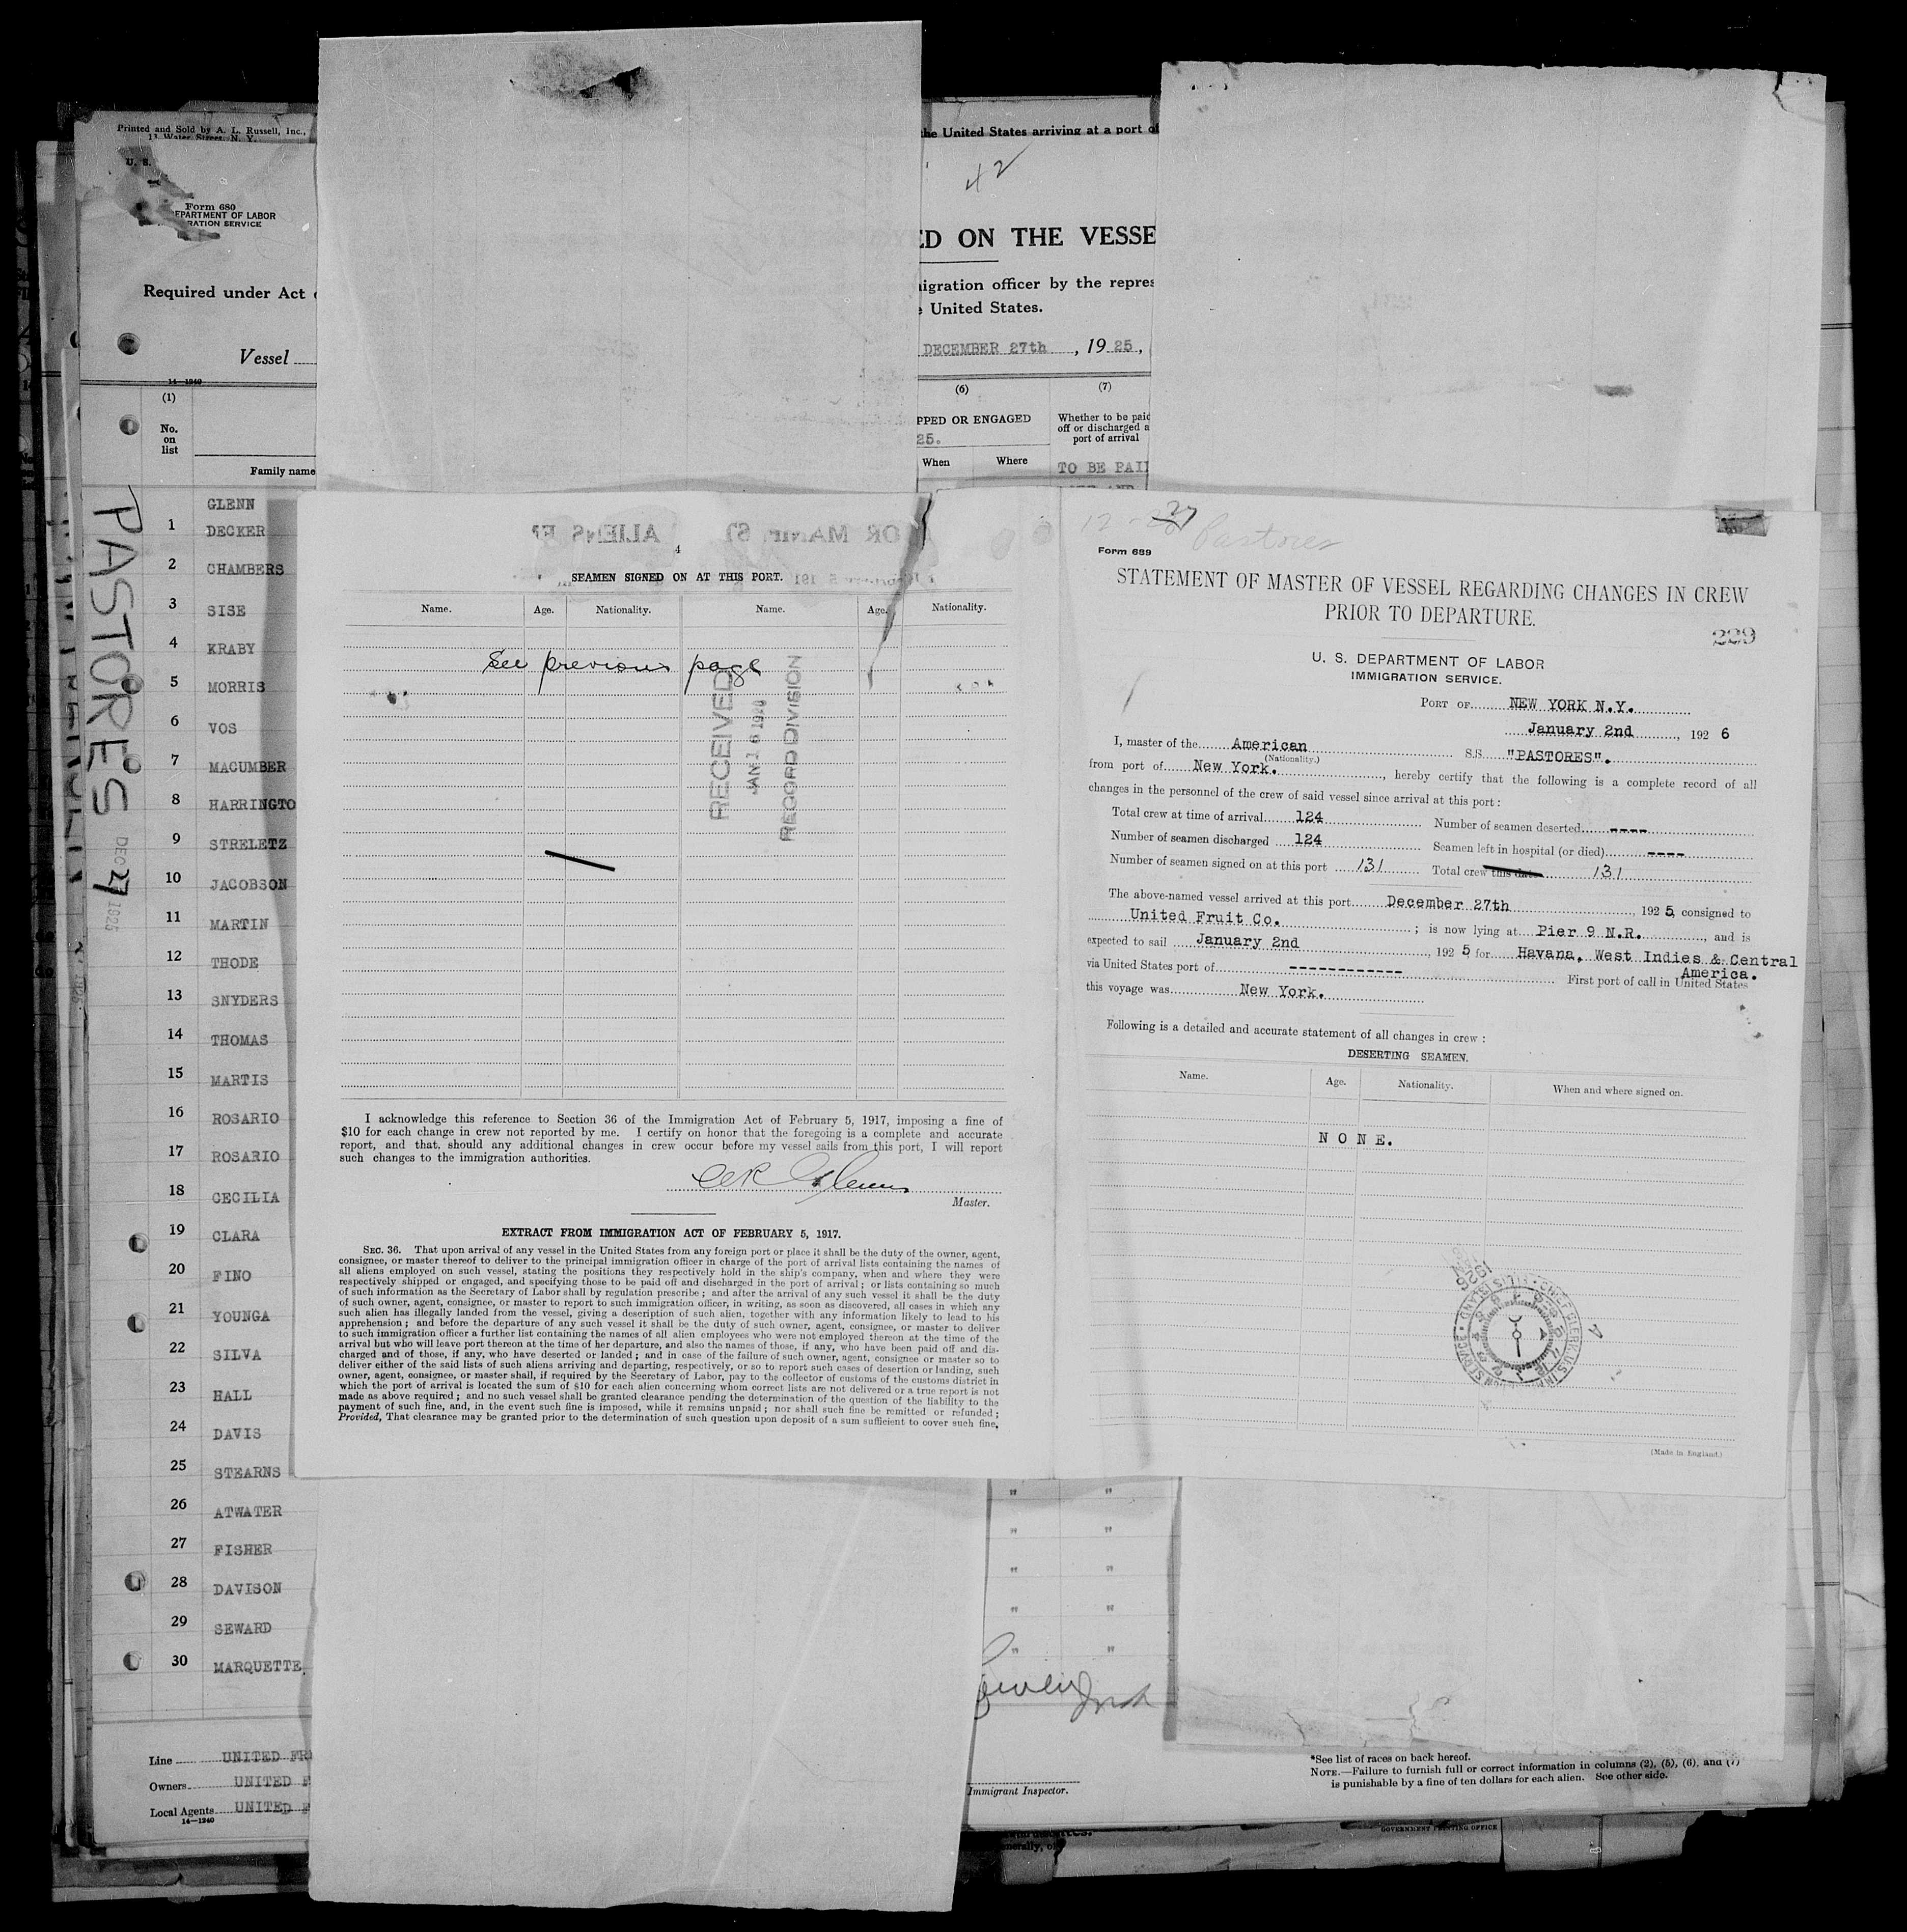 Printed and Sold by A. L. Russell, Inc.,
13 Water Street, N. Y.
U. S.
Form 680
EPARTMENT OF LABOR
RATION SERVICE
Required under Act
Vessel
14—1240
(1)
No.
on
list
Family name
GLENN
1 DECKER
2 CHAMBERS
3 SISE
4 KRABY
5 MORRIS
6 VOS
7 MACUMBER
8 HARRINGTO
9 STRELETZ
10 JACOBSON
11 MARTIN
12 THODE
13 SNYDERS
14 THOMAS
15 MARTIS
16 ROSARIO
17 ROSARIO
18 CECILIA
19 CLARA
20 FINO
21 YOUNGA
22 SILVA
23 HALL
24 DAVIS
25 STEARNS
26 ATWATER
27 FISHER
28 DAVISON
29 SEWARD
30 MARQUETTE
Line UNITED FR
Owners UNITED F
Local Agents UNITED F
14—1240
PASTORES DEC 27 1925
the United States arriving at a port of
42
ED ON THE VESSE
igration officer by the repres
United States.
DECEMBER 27th, 19 25,
(6) (7)
PPED OR ENGAGED
25.
When Where
Whether to be paid
off or discharged a
port of arrival
TO BE PAI
4
SEAMEN SIGNED ON AT THIS PORT.
Name. Age. Nationality. Name. Age. Nationality.
See previous page
RECEIVED
RECORD DIVISION
I acknowledge this reference to Section 36 of the Immigration Act of February 5, 1917, imposing a fine of
$10 for each change in crew not reported by me. I certify on honor that the foregoing is a complete and accurate
report, and that, should any additional changes in crew occur before my vessel sails from this port, I will report
such changes to the immigration authorities.
Glenn
Master.
EXTRACT FROM IMMIGRATION ACT OF FEBRUARY 5, 1917.
SEC. 36. That upon arrival of any vessel in the United States from any foreign port or place it shall be the duty of the owner, agent,
consignee, or master thereof to deliver to the principal immigration officer in charge of the port of arrival lists containing the names of
all aliens employed on such vessel, stating the positions they respectively hold in the ship's company, when and where they were
respectively shipped or engaged, and specifying those to be paid off and discharged in the port of arrival; or lists containing so much
of such information as the Secretary of Labor shall by regulation prescribe; and after the arrival of any such vessel it shall be the duty
of such owner, agent, consignee, or master to report to such immigration officer, in writing, as soon as discovered, all cases in which any
such alien has illegally landed from the vessel, giving a description of such alien, together with any information likely to lead to his
apprehension; and before the departure of any such vessel it shall be the duty of such owner, agent, consignee, or master to deliver
to such immigration officer a further list containing the names of all alien employees who were not employed thereon at the time of the
arrival but who will leave port thereon at the time of her departure, and also the names of those, if any, who have been paid off and dis-
charged and of those, if any, who have deserted or landed; and in case of the failure of such owner, agent, consignee or master so to
deliver either of the said lists of such aliens arriving and departing, respectively, or so to report such cases of desertion or landing, such
owner, agent, consignee, or master shall, if required by the Secretary of Labor, pay to the collector of customs of the customs district in
which the port of arrival is located the sum of $10 for each alien concerning whom correct lists are not delivered or a true report is not
made as above required; and no such vessel shall be granted clearance pending the determination of the question of the liability to the
payment of such fine, and, in the event such fine is imposed, while it remains unpaid; nor shall such fine be remitted or refunded;
Provided, That clearance may be granted prior to the determination of such question upon deposit of a sum sufficient to cover such fine,
27 Pastores
Form 689
STATEMENT OF MASTER OF VESSEL REGARDING CHANGES IN CREW
PRIOR TO DEPARTURE.
229
U. S. DEPARTMENT OF LABOR
IMMIGRATION SERVICE.
PORT OF NEW YORK N.Y.
January 2nd, 192 6
I, master of the American S.S. "PASTORES".
(Nationality.)
from port of New York., hereby certify that the following is a complete record of all
changes in the personnel of the crew of said vessel since arrival at this port:
Total crew at time of arrival 124 Number of seamen deserted ----
Number of seamen discharged 124 Seamen left in hospital (or died) ----
Number of seamen signed on at this port 131 Total crew this date 131
The above-named vessel arrived at this port December 27th, 192 5, consigned to
United Fruit Co.; is now lying at Pier 9 N.R., and is
expected to sail January 2nd, 192 5 for Havana. West Indies & Central
America.
via United States port of ------------ First port of call in United States
this voyage was New York.
Following is a detailed and accurate statement of all changes in crew:
DESERTING SEAMEN.
Name. Age. Nationality. When and where signed on.
NONE.
1926
(Made in England.)
Immigrant Inspector.
*See list of races on back hereof.
NOTE.—Failure to furnish full or correct information in columns (2), (5), (6), and (7)
is punishable by a fine of ten dollars for each alien. See other side.
GOVERNMENT PRINTING OFFICE